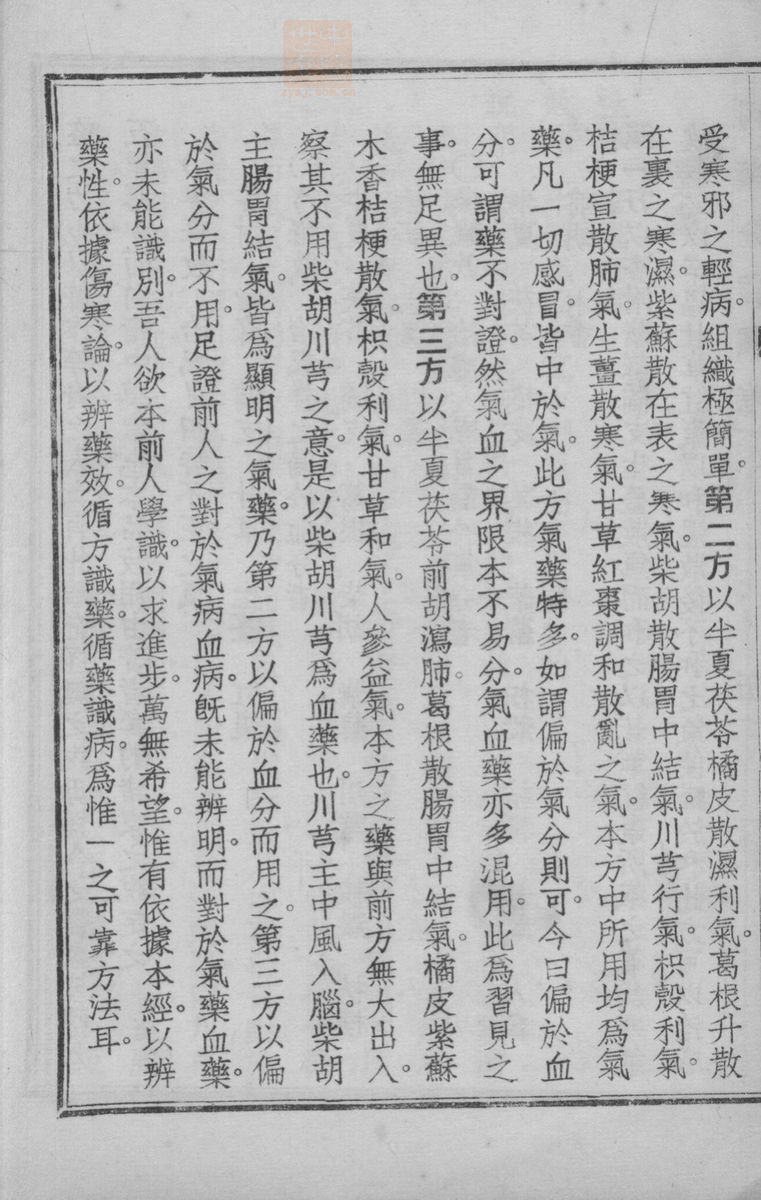 受寒邪之輕病。組織極簡單。第二方以半夏茯苓橘皮散濕利氣。葛根升散
在裏之寒濕。紫蘇散在表之寒氣。柴胡散腸胃中結氣。川芎行氣。枳殼利氣。
桔梗宣散肺氣。生薑散寒氣。甘草紅棗調和散亂之氣。本方中所用均爲氣
藥。凡一切感冒。皆中於氣。此方氣藥特多。如謂偏於氣分則可。今曰偏於血
分。可謂藥不對證。然氣血之界限本不易分。氣血藥亦多混用。此爲習見之
事。無足異也。第三方以半夏茯苓前胡瀉肺。葛根散腸胃中結氣。橘皮紫蘇
木香桔梗散氣。枳殼利氣。甘草和氣。人參益氣。本方之藥與前方無大出入。
察其不用柴胡川芎之意。是以柴胡川芎爲血藥也。川芎主中風入腦。柴胡
主腸胃結氣。皆爲顯明之氣藥。乃第二方以偏於血分而用之。第三方以偏
於氣分而不用。足證前人之對於氣病血病。旣未能辨明。而對於氣藥血藥。
亦未能識別。吾人欲本前人學識。以求進步。萬無希望。惟有依據本經。以辨
藥性。依據傷寒論。以辨藥效。循方識藥。循藥識病。爲惟一之可靠方法耳。